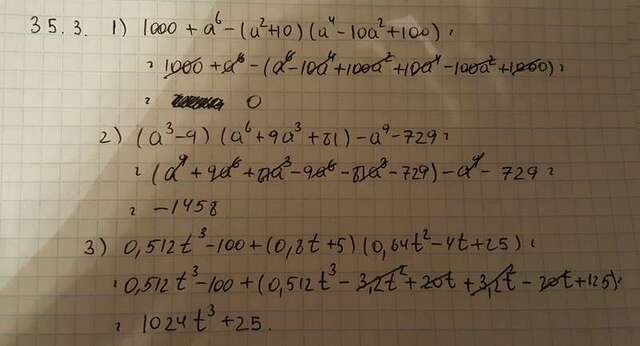 35.3. 1) 1000 + a⁶ - (a²+10) (a⁴ - 10a² + 100) =
= 1000 + a⁶ - (a⁶ - 10a⁴ + 100a² + 10a⁴ - 100a² + 1000) =
= 0
2) (a³-9) (a⁶ + 9a³ + 81) - a⁹ - 729 =
= (a⁹ + 9a⁶ + 81a³ - 9a⁶ - 81a³ - 729) - a⁹ - 729 =
= -1458
3) 0,512t³ - 100 + (0,8t + 5) (0,64t² - 4t + 25) =
= 0,512t³ - 100 + (0,512t³ - 3,2t² + 20t + 3,2t² - 20t + 125) =
= 1024t³ + 25.